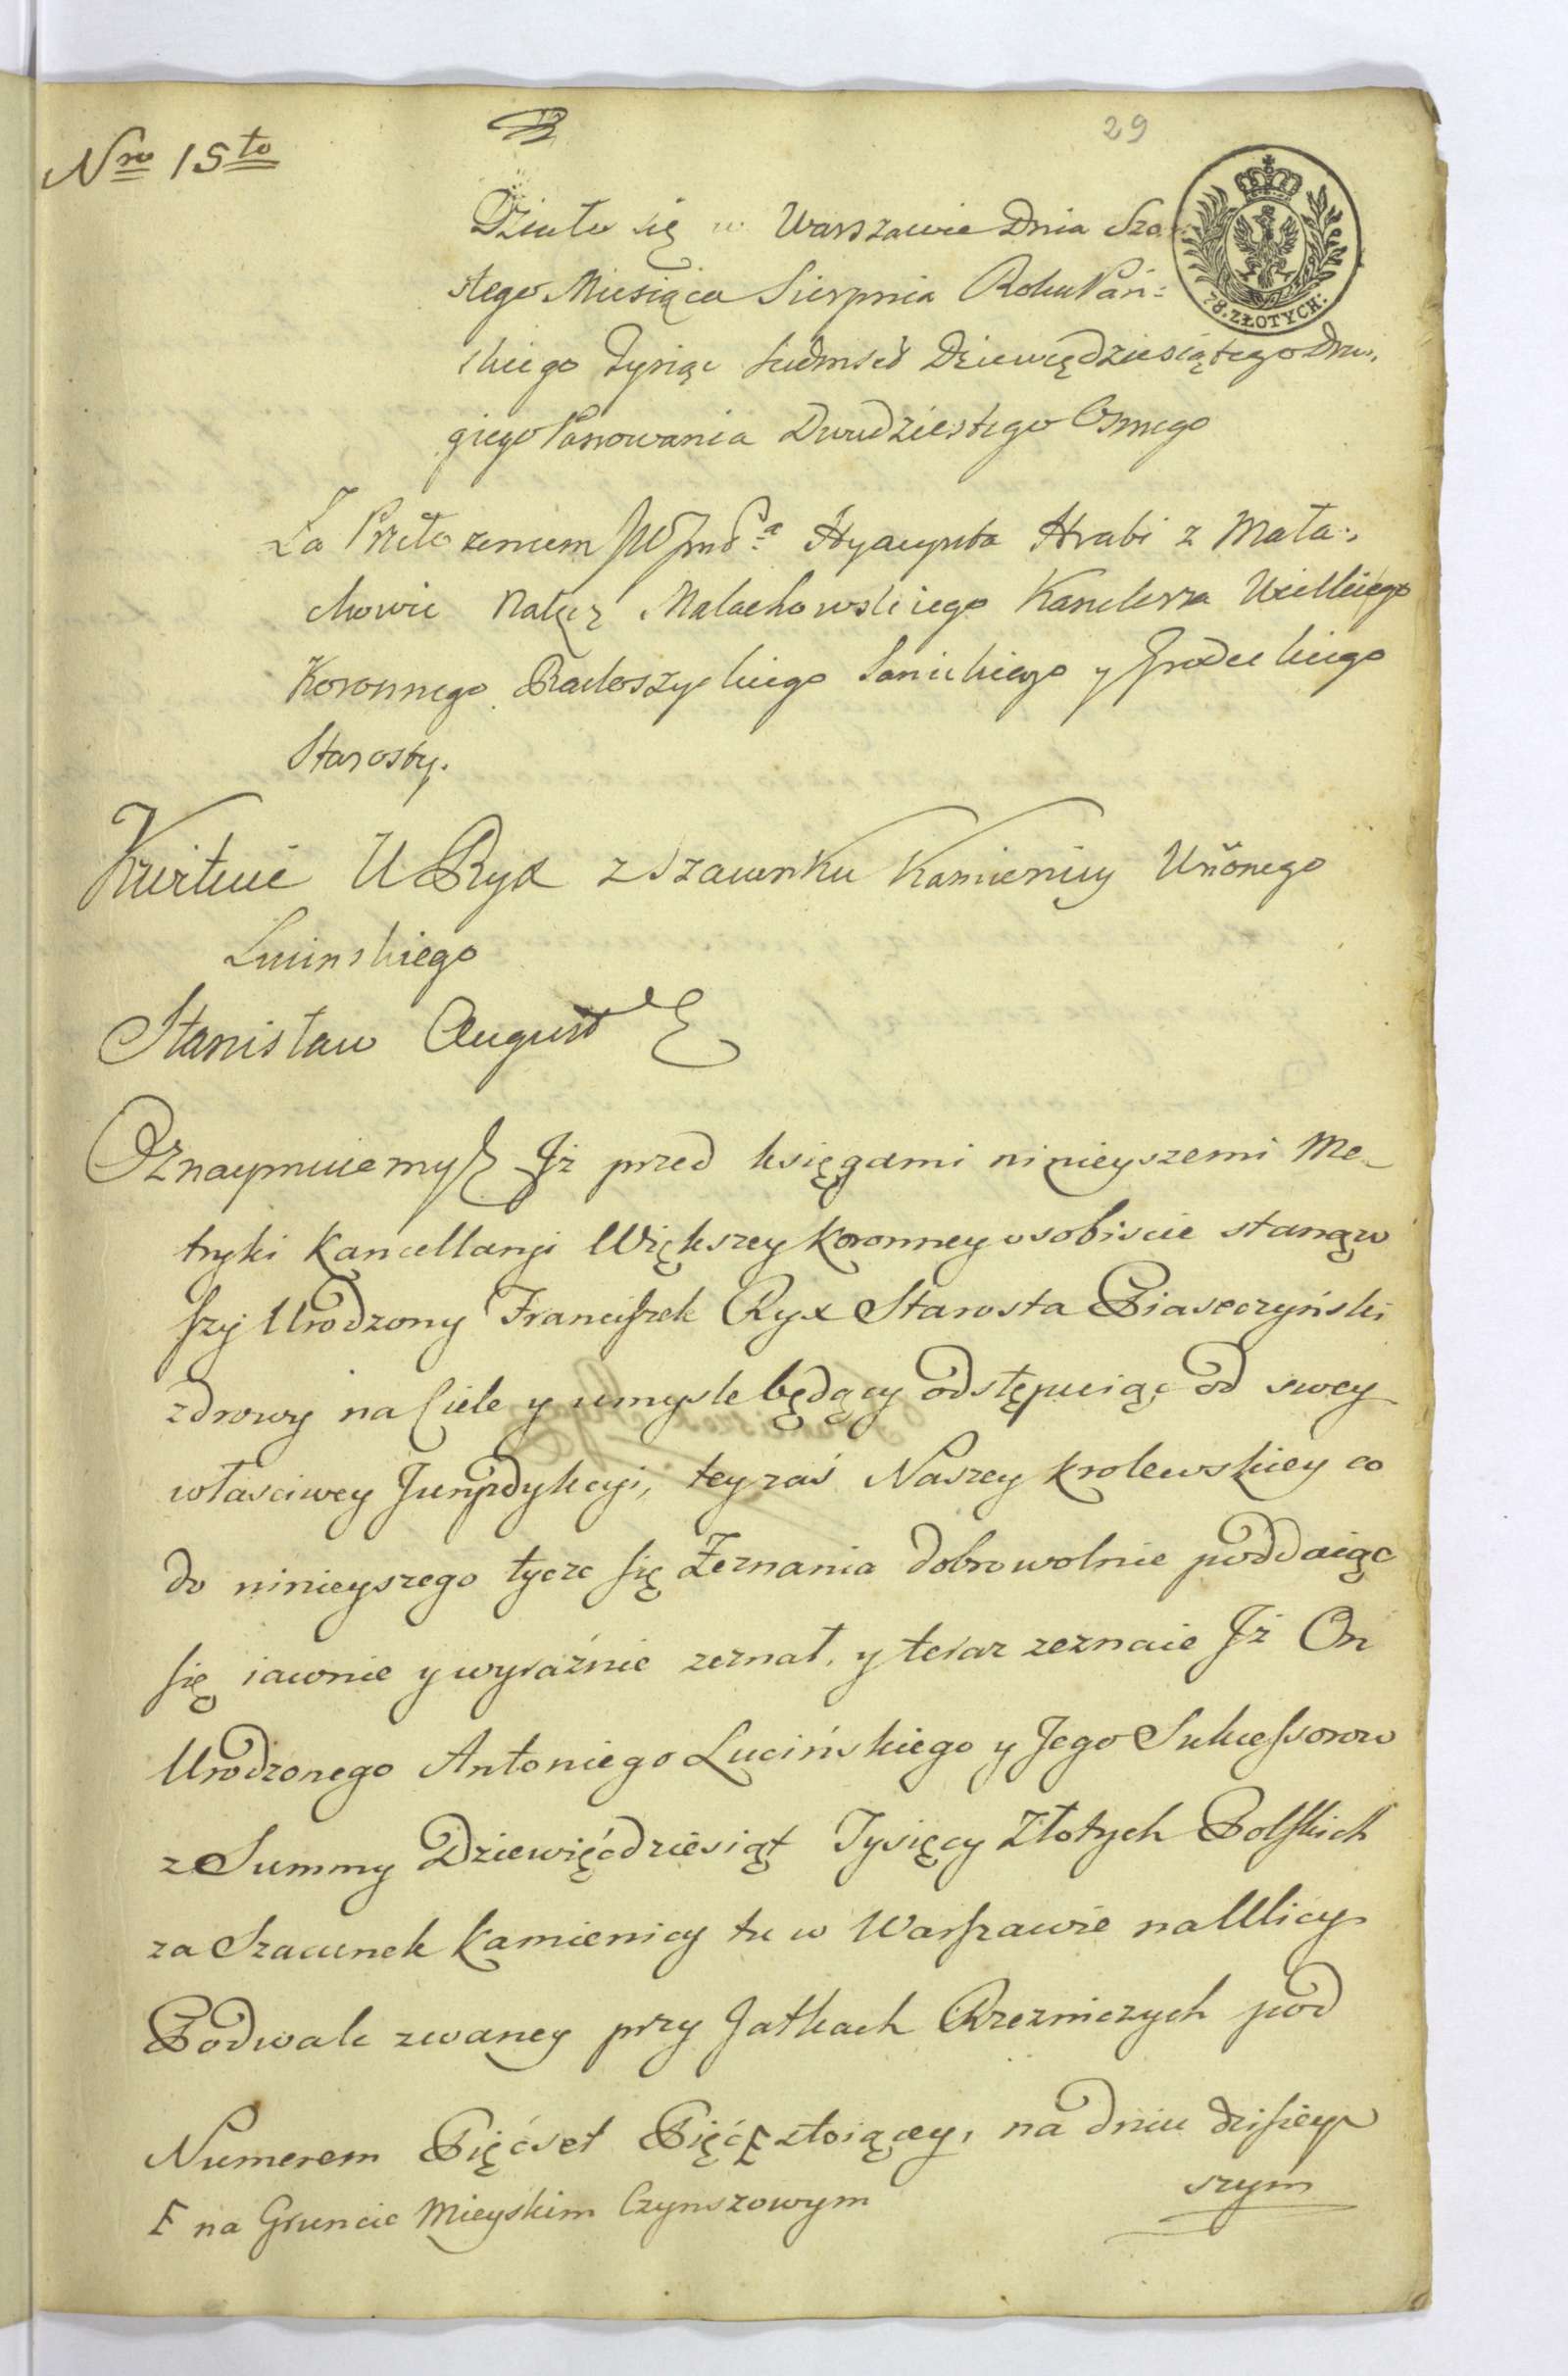 29
Nro 15to
Działo się w Warszawie Dnia Szo-
stego Miesiąca Sierpnia Roku Pań:
skiego Tysiąc siedmset Dziewiędziesiątego Dru-
giego Panowania Dwudziestego Osmego
78. ZŁOTYCH:
Za Przełożeniem Hyacynta Hrabi z Mała-
chowic Nałęz Małachowskiego Kanclerza Wielkiego
Koronnego Radoszyckiego Sanickiego y Grodeckiego
Starosty.
Kwituie U Ryx z Szacunku Kamienicy Urōnego
Lucinskiego
Stanisław August
Oznaymuiemy Jż przed księgami ninieyszemi Me-
tryki Kancellaryi Większey Koronney osobiscie stanąw
szy Urodzony Franciszek Ryx Starosta Piaseczyński
zdrowy na Ciele y umysle będący odstępuiąc od swey
własciwey Juryzdykcyi, tey zaś Naszey krolewskiey co
do ninieyszego tycze się Zeznania dobrowolnie poddaiąc
się iawnie y wyraźnie zeznał, y teraz zeznaie Jż On
Urodzonego Antoniego Lucińskiego y Jego Sukcessorow
z Summy Dziewięćdziesiąt Tysięcy Złotych Polskich
za Szacunek kamienicy tu w Warszawie na Ulicy
Podwale zwaney przy Jatkach Rzezniczych pod
Numerem Pięćset Pięć F stoiącey, na dniu dzisiey-
szym
F na Gruncie Mieyskim Czynszowym